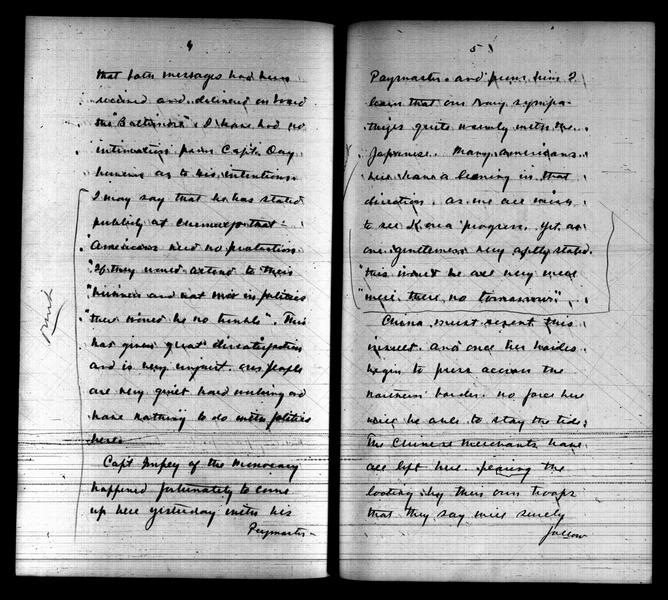 4
that both messages had been
received and delivered on board
the "Baltimore". I have had no
intimation from Capt. Day
however as to his intentions.
I may say that he has stated
publicly at Chemulpo that
"Americans need no protection
"If they would attend to their
"business and not mix in politics
"there would be no trouble". This
has given great dissatisfaction
and is very unjust. Our people
are very quiet hard working and
have nothing to do with politics
here.
Capt Impey of the Monocacy
happened fortunately to come
up here yesterday with his
Paymaster
5
Paymaster. and from him I
learn that our Navy sympa-
thizes quite warmly with the
Japanese. Many Americans
here have a leaning in that
direction, as we are
to see Korea progress. Yet as
one gentleman very aptly stated
"this would be all very well
"were there no tomorrow".
China must resent this
insult. and once her hordes
begin to press across the
northern border. no force here
will be able to stay the tide.
The Chinese Merchants have
all left here. fearing the
looting by their own troops
that they say will surely
follow